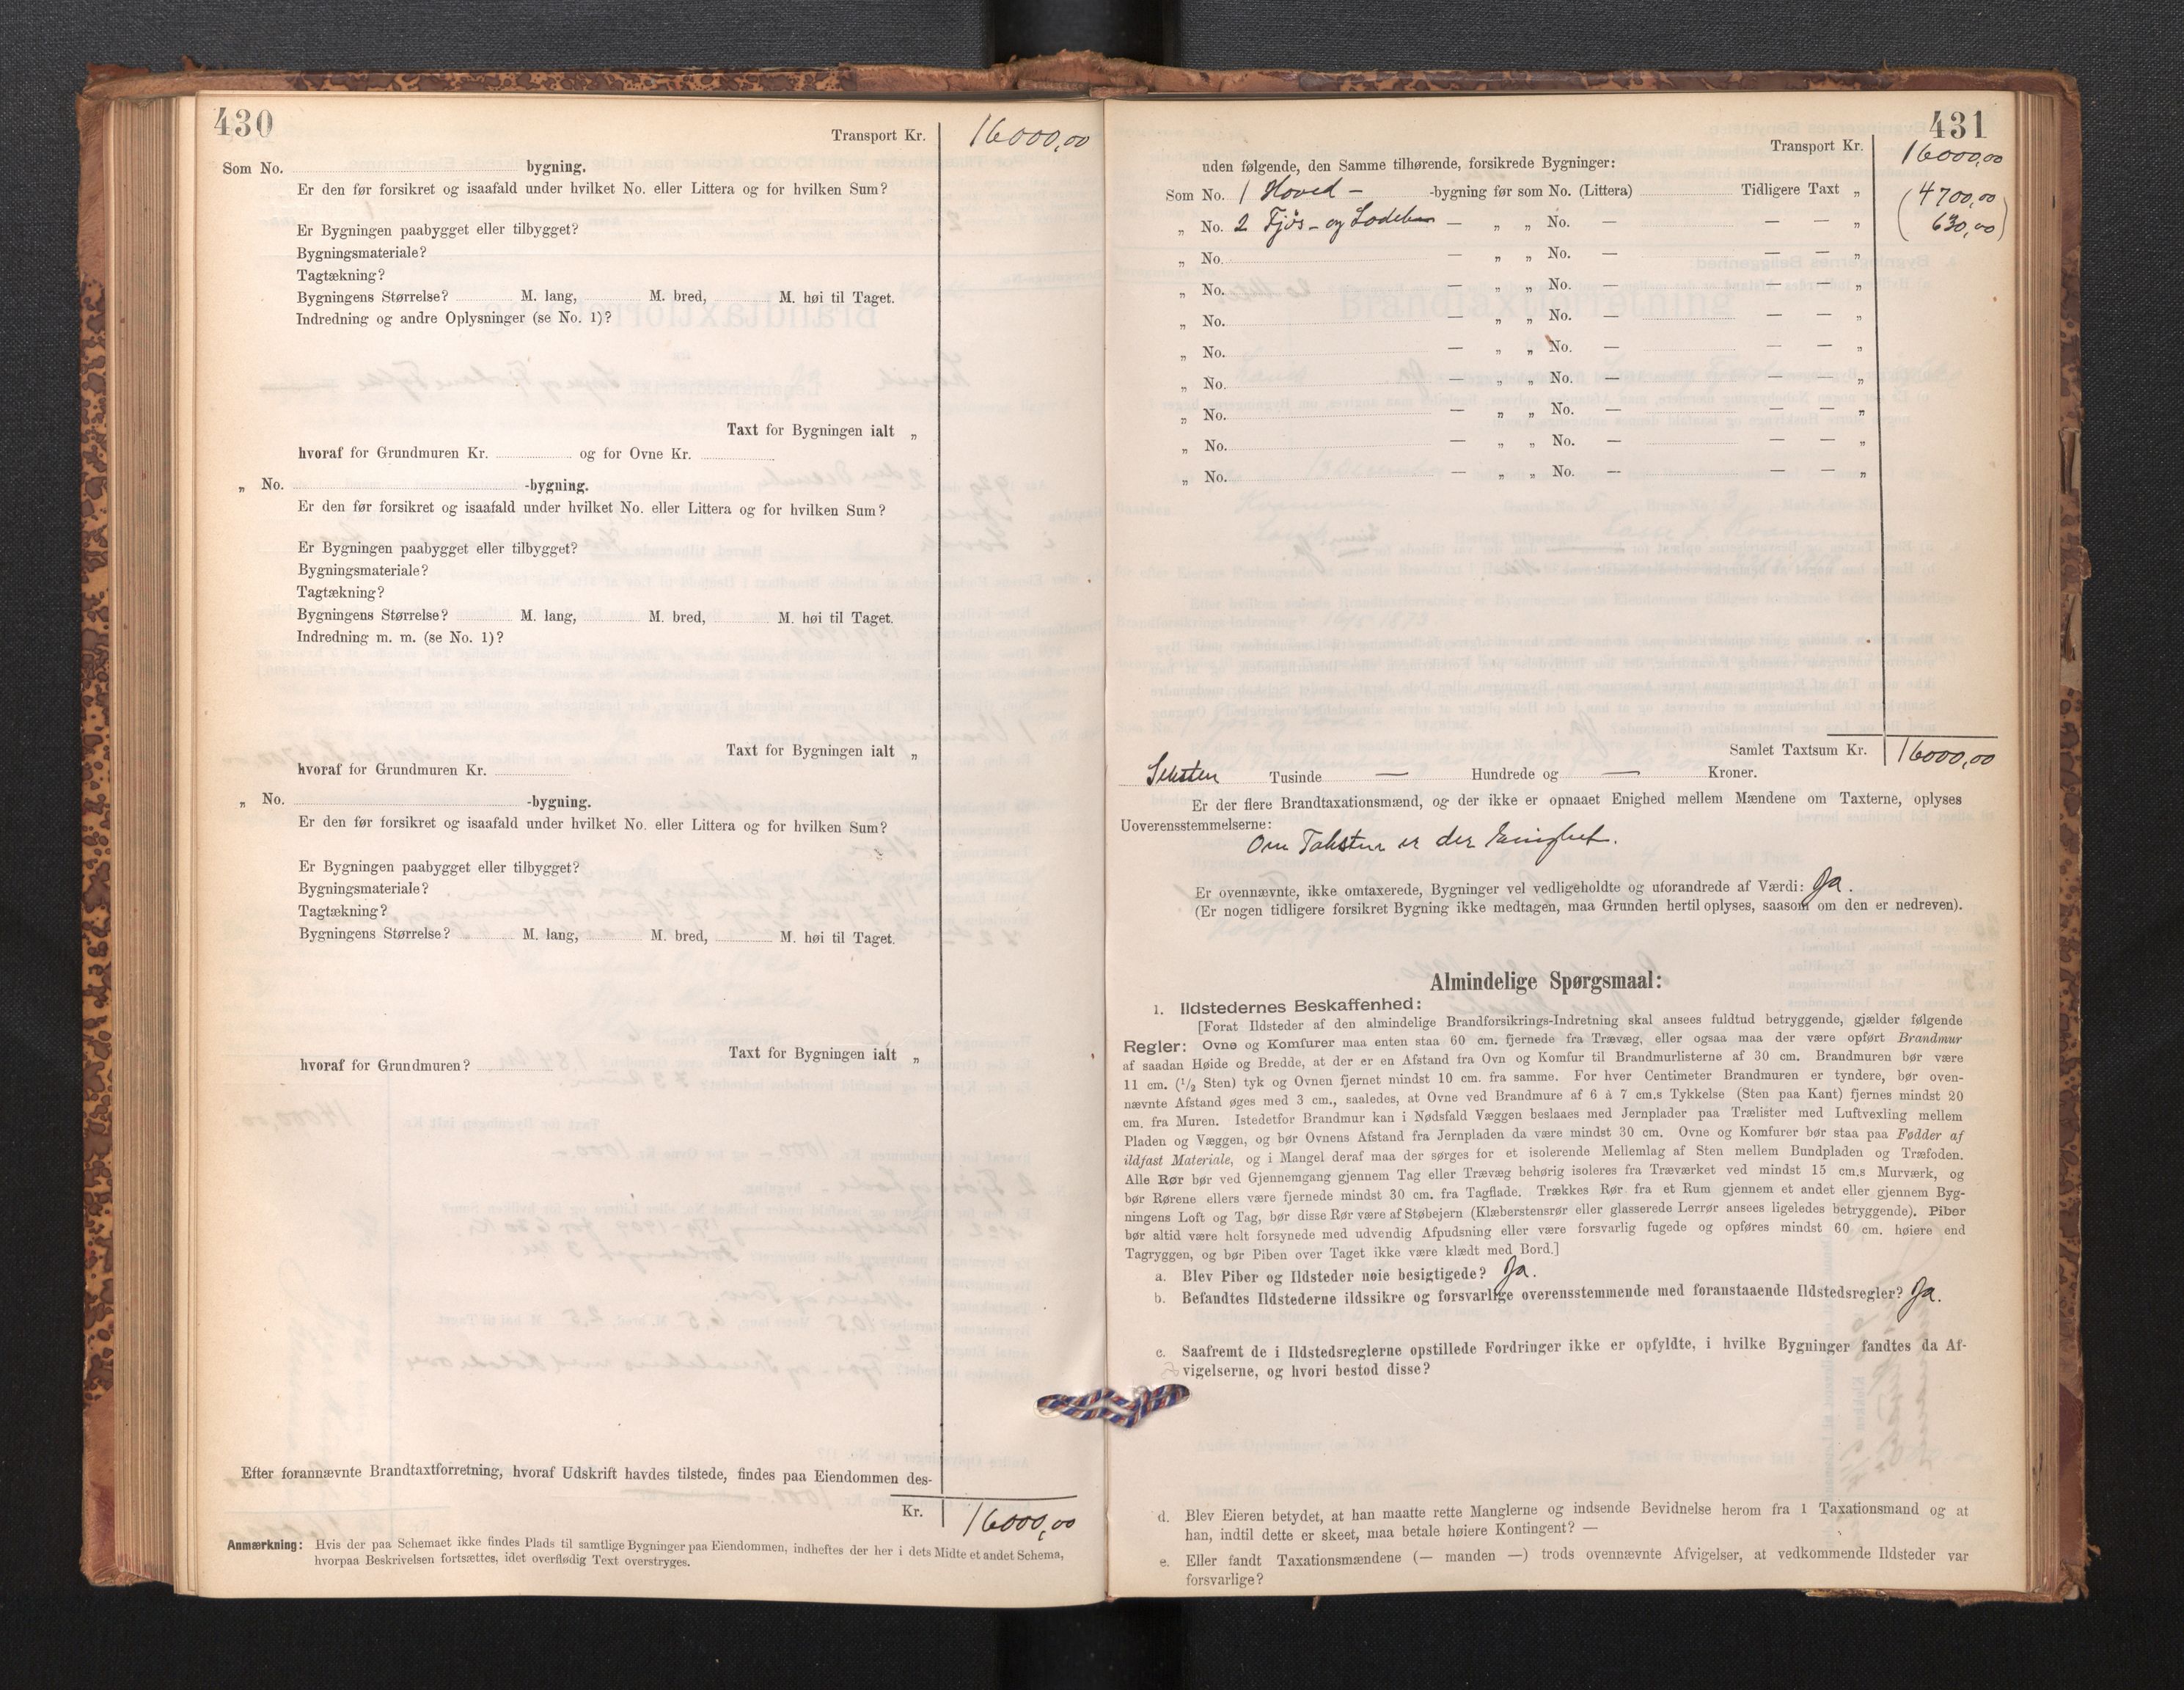 430
Transport Kr. 16000,00
Som No. bygning.
Er den før forsikret og isaafald under hvilket No. eller Littera og for hvilken Sum?
Er Bygningen paabygget eller tilbygget?
Bygningsmateriale?
Tagtækning?
Bygningens Størrelse? M. lang, M. bred, M. høi til Taget.
Indredning og andre Oplysninger (se No. 1)?
Taxt for Bygningen ialt „
hvoraf for Grundmuren Kr. og for Ovne Kr.
„ No. -bygning.
Er den før forsikret og isaafald under hvilket No. eller Littera og for hvilken Sum?
Er Bygningen paabygget eller tilbygget?
Bygningsmateriale?
Tagtækning?
Bygningens Størrelse? M. lang, M. bred, M. høi til Taget.
Indredning m. m. (se No. 1)?
Taxt for Bygningen ialt „
hvoraf for Grundmuren Kr.
„ No. -bygning.
Er den før forsikret og isaafald under hvilket No. eller Littera og for hvilken Sum?
Er Bygningen paabygget eller tilbygget?
Bygningsmateriale?
Tagtækning?
Bygningens Størrelse? M. lang, M. bred, M. høi til Taget.
Taxt for Bygningen ialt „
hvoraf for Grundmuren?
Efter forannævnte Brandtaxtforretning, hvoraf Udskrift havdes tilstede, findes paa Eiendommen des-
Kr. 16000,00
Anmærkning: Hvis der paa Schemaet ikke findes Plads til samtlige Bygninger paa Eiendommen, indheftes der her i dets Midte et andet Schema,
hvorpaa Beskrivelsen fortsættes, idet overflødig Text overstryges.
431
Transport Kr. 16000,00
uden følgende, den Samme tilhørende, forsikrede Bygninger:
Som No. 1 Hoved - -bygning før som No. (Littera) Tidligere Taxt „ (4700,00
„ No. 2 Fjøs- og Lodebm — „ „ No. — — — „ 630,00)
„ No. — „ „ No. — — — „
„ No. — „ „ No. — — — „
„ No. — „ „ No. — — — „
„ No. — „ „ No. — — — „
„ No. — „ „ No. — — — „
„ No. — „ „ No. — — — „
„ No. — „ „ No. — — — „
„ No. — „ „ No. — — — „
Samlet Taxtsum Kr. 16000,00
Seksten Tusinde — Hundrede og — Kroner.
Er der flere Brandtaxationsmænd, og der ikke er opnaaet Enighed mellem Mændene om Taxterne, oplyses
Uoverensstemmelserne:
Om Taksten er der Enighet.
Er ovennævnte, ikke omtaxerede, Bygninger vel vedligeholdte og uforandrede af Værdi: Ja.
(Er nogen tidligere forsikret Bygning ikke medtagen, maa Grunden hertil oplyses, saasom om den er nedreven).
Almindelige Spørgsmaal:
1. Ildstedernes Beskaffenhed:
[Forat Ildsteder af den almindelige Brandforsikrings-Indretning skal ansees fuldtud betryggende, gjælder følgende
Regler: Ovne og Komfurer maa enten staa 60 cm. fjernede fra Trævæg, eller ogsaa maa der være opført Brandmur
af saadan Høide og Bredde, at der er en Afstand fra Ovn og Komfur til Brandmurlisterne af 30 cm. Brandmuren bør være
11 cm. (1/2 Sten) tyk og Ovnen fjernet mindst 10 cm. fra samme. For hver Centimeter Brandmuren er tyndere, bør oven-
nævnte Afstand øges med 3 cm., saaledes, at Ovne ved Brandmure af 6 à 7 cm.s Tykkelse (Sten paa Kant) fjernes mindst 20
cm. fra Muren. Istedetfor Brandmur kan i Nødsfald Væggen beslaaes med Jernplader paa Trælister med Luftvexling mellem
Pladen og Væggen, og bør Ovnens Afstand fra Jernpladen da være mindst 30 cm. Ovne og Komfurer bør staa paa Fødder af
ildfast Materiale, og i Mangel deraf maa der sørges for et isolerende Mellemlag af Sten mellem Bundpladen og Træfoden.
Alle Rør bør ved Gjennemgang gjennem Tag eller Trævæg behørig isoleres fra Træværket ved mindst 15 cm.s Murværk, og
bør Rørene ellers være fjernede mindst 30 cm. fra Tagflade. Trækkes Rør fra et Rum gjennem et andet eller gjennem Byg-
ningens Loft og Tag, bør disse Rør være af Støbejern (Klæberstensrør eller glasserede Lerrør ansees ligeledes betryggende). Piber
bør altid være helt forsynede med udvendig Afpudsning eller være forsvarlig fugede og opføres mindst 60 cm. høiere end
Tagryggen, og bør Piben over Taget ikke være klædt med Bord.]
a. Blev Piber og Ildsteder nøie besigtigede? Ja.
b. Befandtes Ildstederne ildssikre og forsvarlige overensstemmende med foranstaaende Ildstedsregler? Ja.
c. Saafremt de i Ildstedsreglerne opstillede Fordringer ikke er opfyldte, i hvilke Bygninger fandtes da Af-
vigelserne, og hvori bestod disse?
d. Blev Eieren betydet, at han maatte rette Manglerne og indsende Bevidnelse herom fra 1 Taxationsmand og at
han, indtil dette er skeet, maa betale høiere Kontingent? —
e. Eller fandt Taxationsmændene (— manden —) trods ovennævnte Afvigelser, at vedkommende Ildsteder var
forsvarlige?